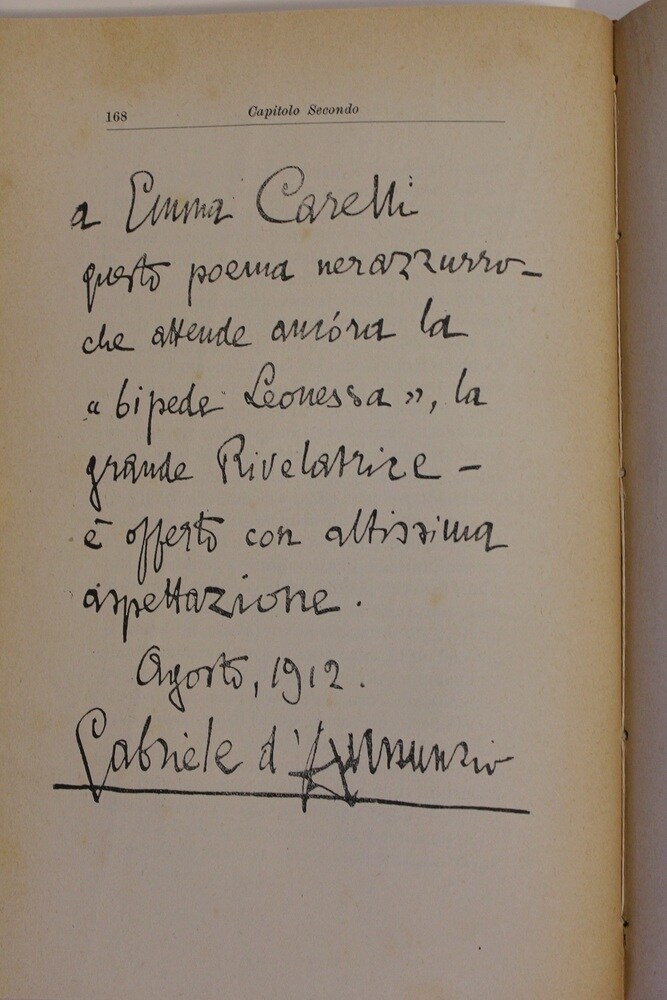 168
Capitolo Secondo
a Emma Carelli
questo poema nerazzurro –
che attende ancóra la
« bipede Leonessa », la
grande Rivelatrice –
è offerto con altissima
aspettazione.
Agosto, 1912.
Gabriele d'Annunzio